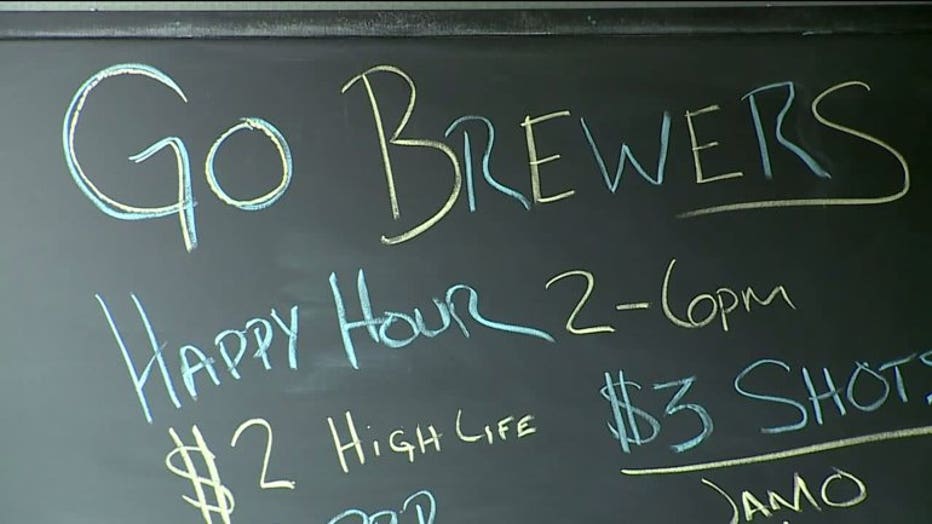 GO BREWERS
HAPPY HOUR 2-6pm
$2 HIGH LIFE
$3 SHOTS
JAMO